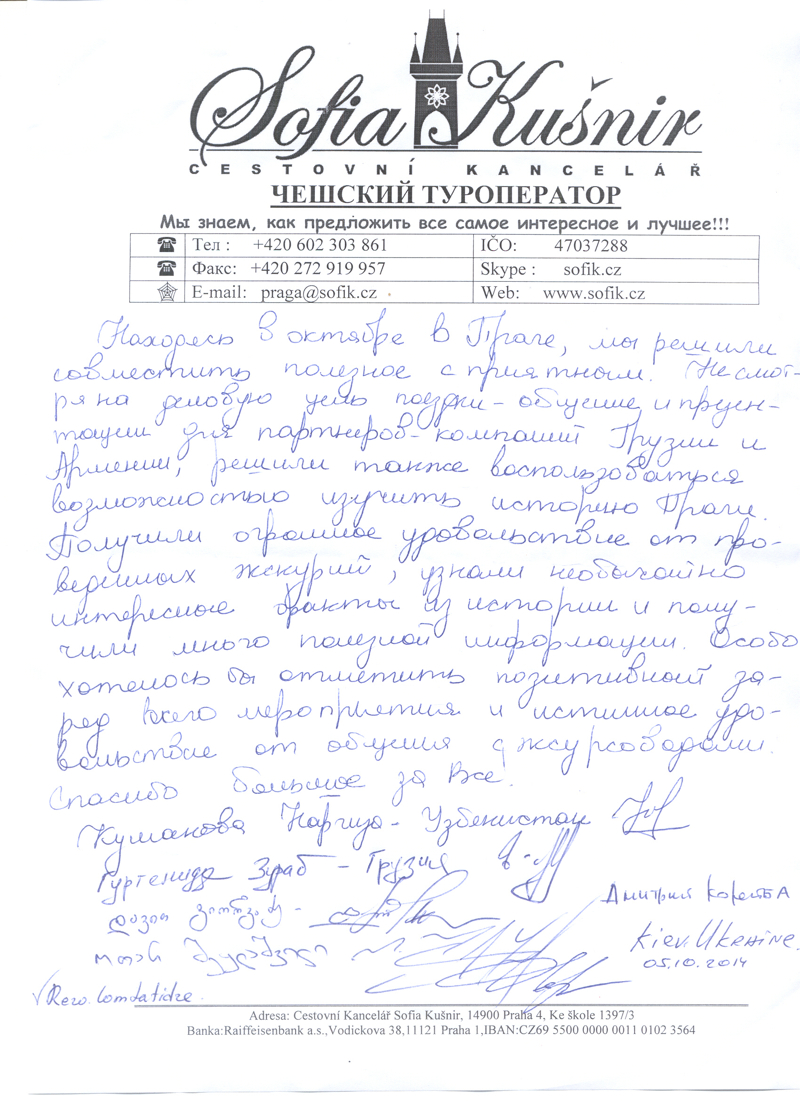 Sofia Kušnir
CESTOVNÍ KANCELÁŘ
ЧЕШСКИЙ ТУРОПЕРАТОР
Мы знаем, как предложить все самое интересное и лучшее!!!
Тел : +420 602 303 861 IČO: 47037288
Факс: +420 272 919 957 Skype : sofik.cz
E-mail: praga@sofik.cz Web: www.sofik.cz
Находясь в октябре в Праге, мы решили
совместить полезное с приятным. Несмот-
ря на деловую цель поездки - общение и презен-
тации для партнеров-компаний Грузии и
Армении, решили также воспользоваться
возможностью изучить историю Праги.
Получили огромное удовольствие от про-
веденных экскурсий, узнали необычайно
интересные факты из истории и полу-
чили много полезной информации. Особо
хотелось бы отметить позитивный за-
ряд всего мероприятия и истинное удо-
вольствие от общения с экскурсоводами.
Спасибо большое за все.
Наргиза - Узбекистан
Зураб - Грузия
დავით
ოთარ
Дмитрий
Kiev. Ukraine.
05.10.2014
Rezo. Lomtatidze
Adresa: Cestovní Kancelář Sofia Kušnir, 14900 Praha 4, Ke škole 1397/3
Banka:Raiffeisenbank a.s.,Vodickova 38,11121 Praha 1,IBAN:CZ69 5500 0000 0011 0102 3564